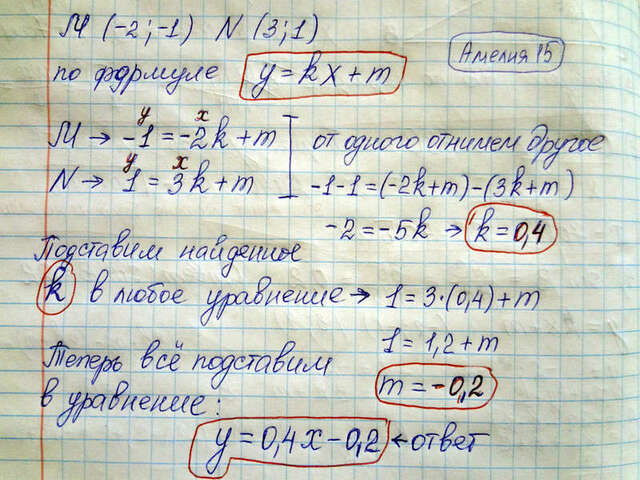 M (-2;-1) N (3;1)
Амелия 15
по формуле y=kx+m
y x
M → -1=-2k+m
от одного отнимем другое
y x
N → 1=3k+m
-1-1=(-2k+m)-(3k+m)
-2=-5k → k=0,4
Подставим найденное
k в любое уравнение → 1=3·(0,4)+m
1=1,2+m
Теперь всё подставим
m=-0,2
в уравнение:
y=0,4x-0,2 ← ответ